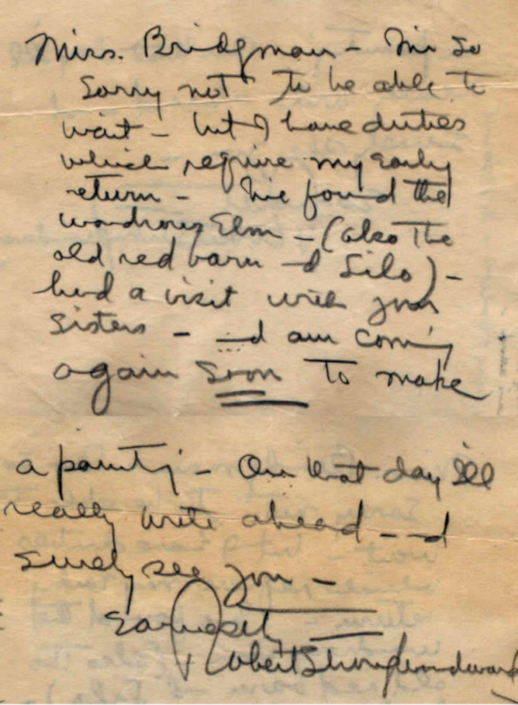 Mrs. Bridgman - I'm so
sorry not to be able to
wait - but I have duties
which require my early
return - I've found the
wondrous Elm - (also the
old red barn -d Silo) -
had a visit with your
sisters - -d am coming
again soon to make
a painting - On that day I'll
really write ahead - -d
surely see you -
Earnestly
Robert Strong Woodward